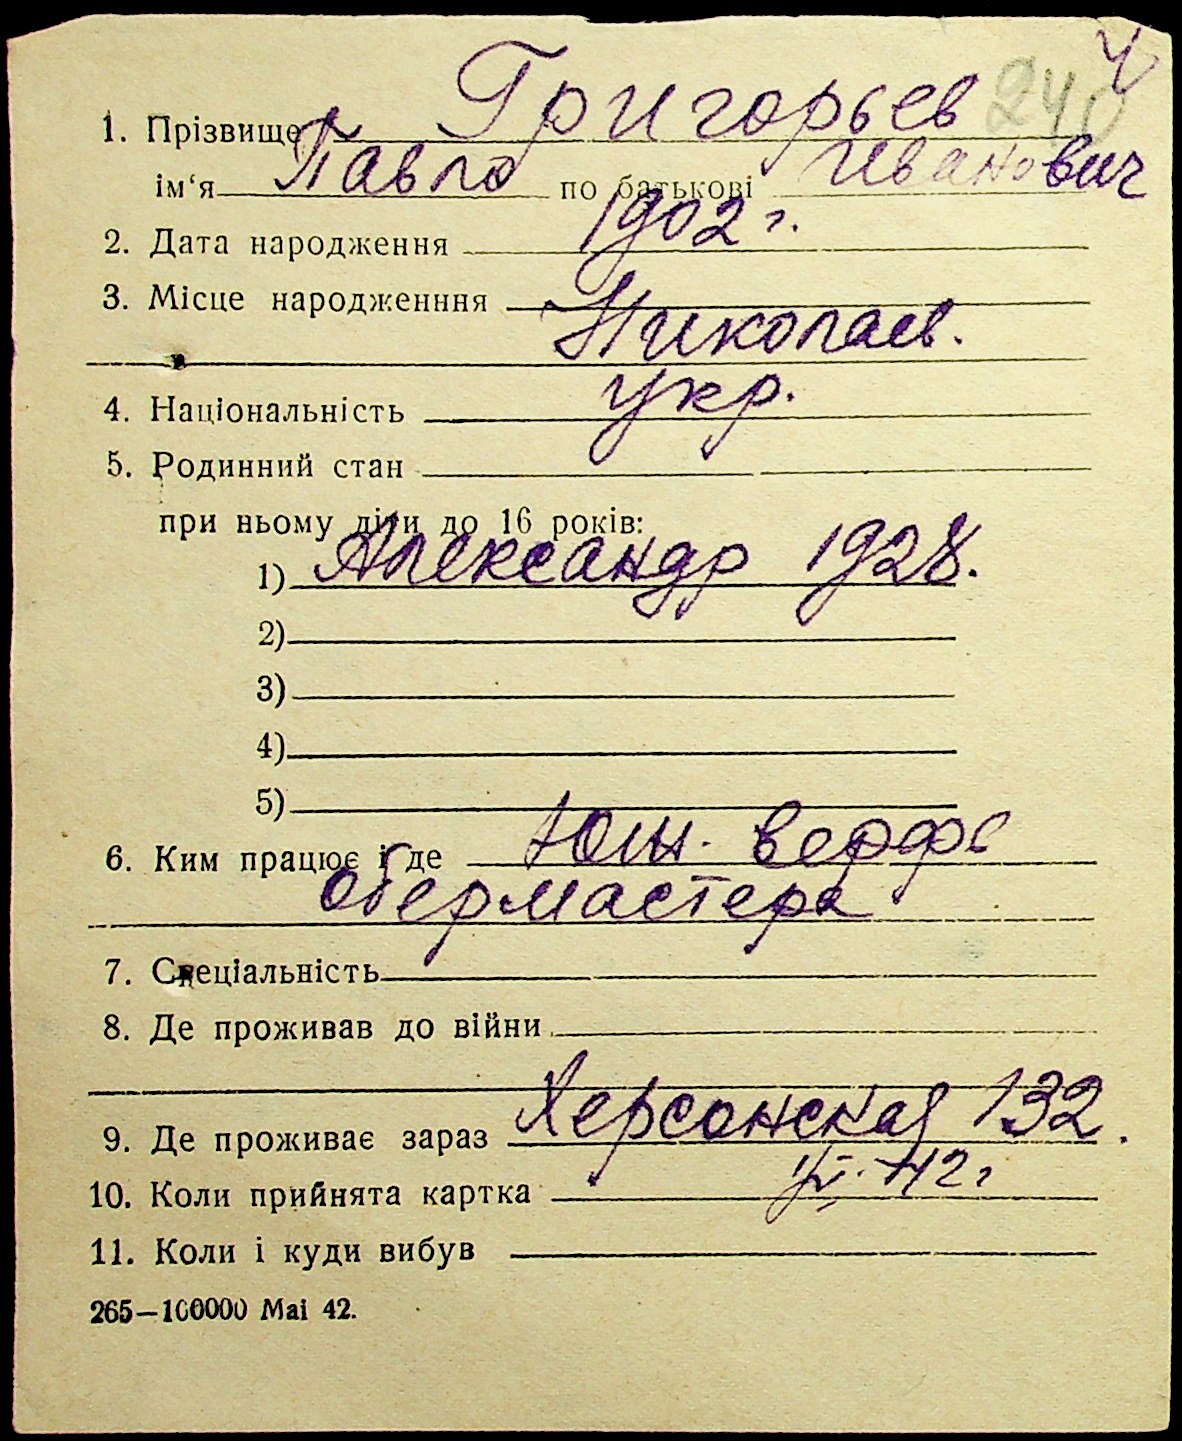 ч
240
1. Прізвище Григорьев
ім‘я Павло по батькові Иванович
2. Дата народження 1902 г.
3. Місце народженння Николаев.
4. Національність укр.
5. Родинний стан
при ньому діти до 16 років:
1) Александр 1928.
2)
3)
4)
5)
6. Ким працює і де Юж. верфь
обермастера
7. Спеціальність
8. Де проживав до війни
9. Де проживає зараз Херсонская 132.
10. Коли прийнята картка 42 г
11. Коли і куди вибув
265—100000 Mai 42.